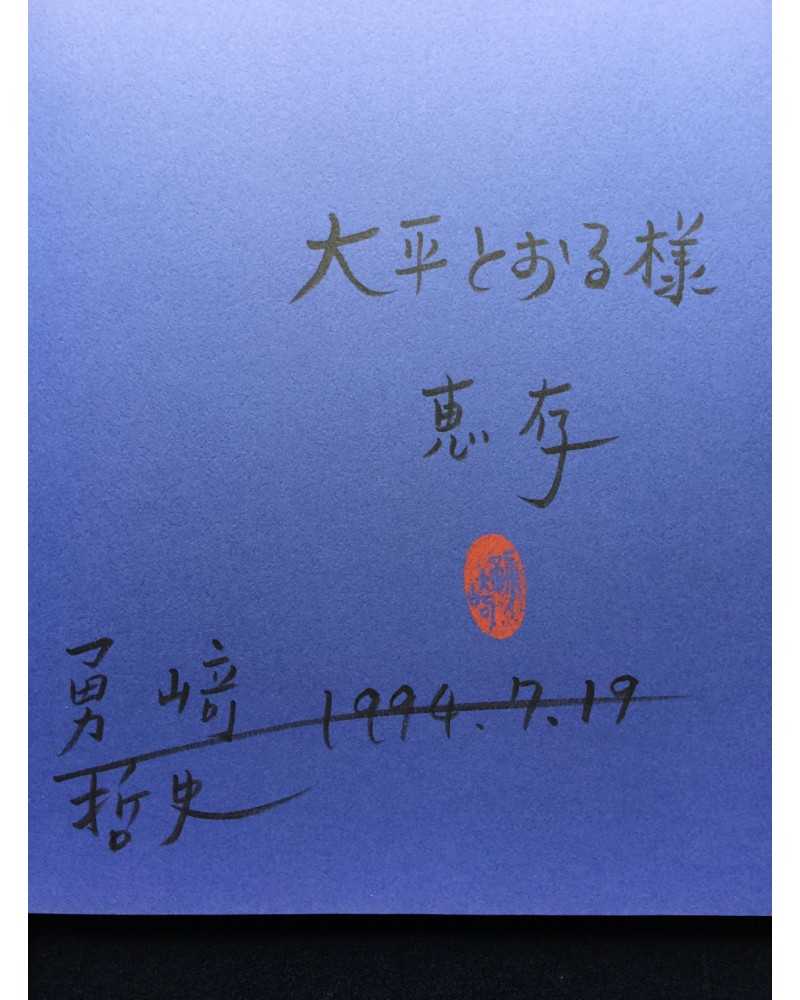 大平とおる様
恵存
勇﨑 1994.7.19
哲史